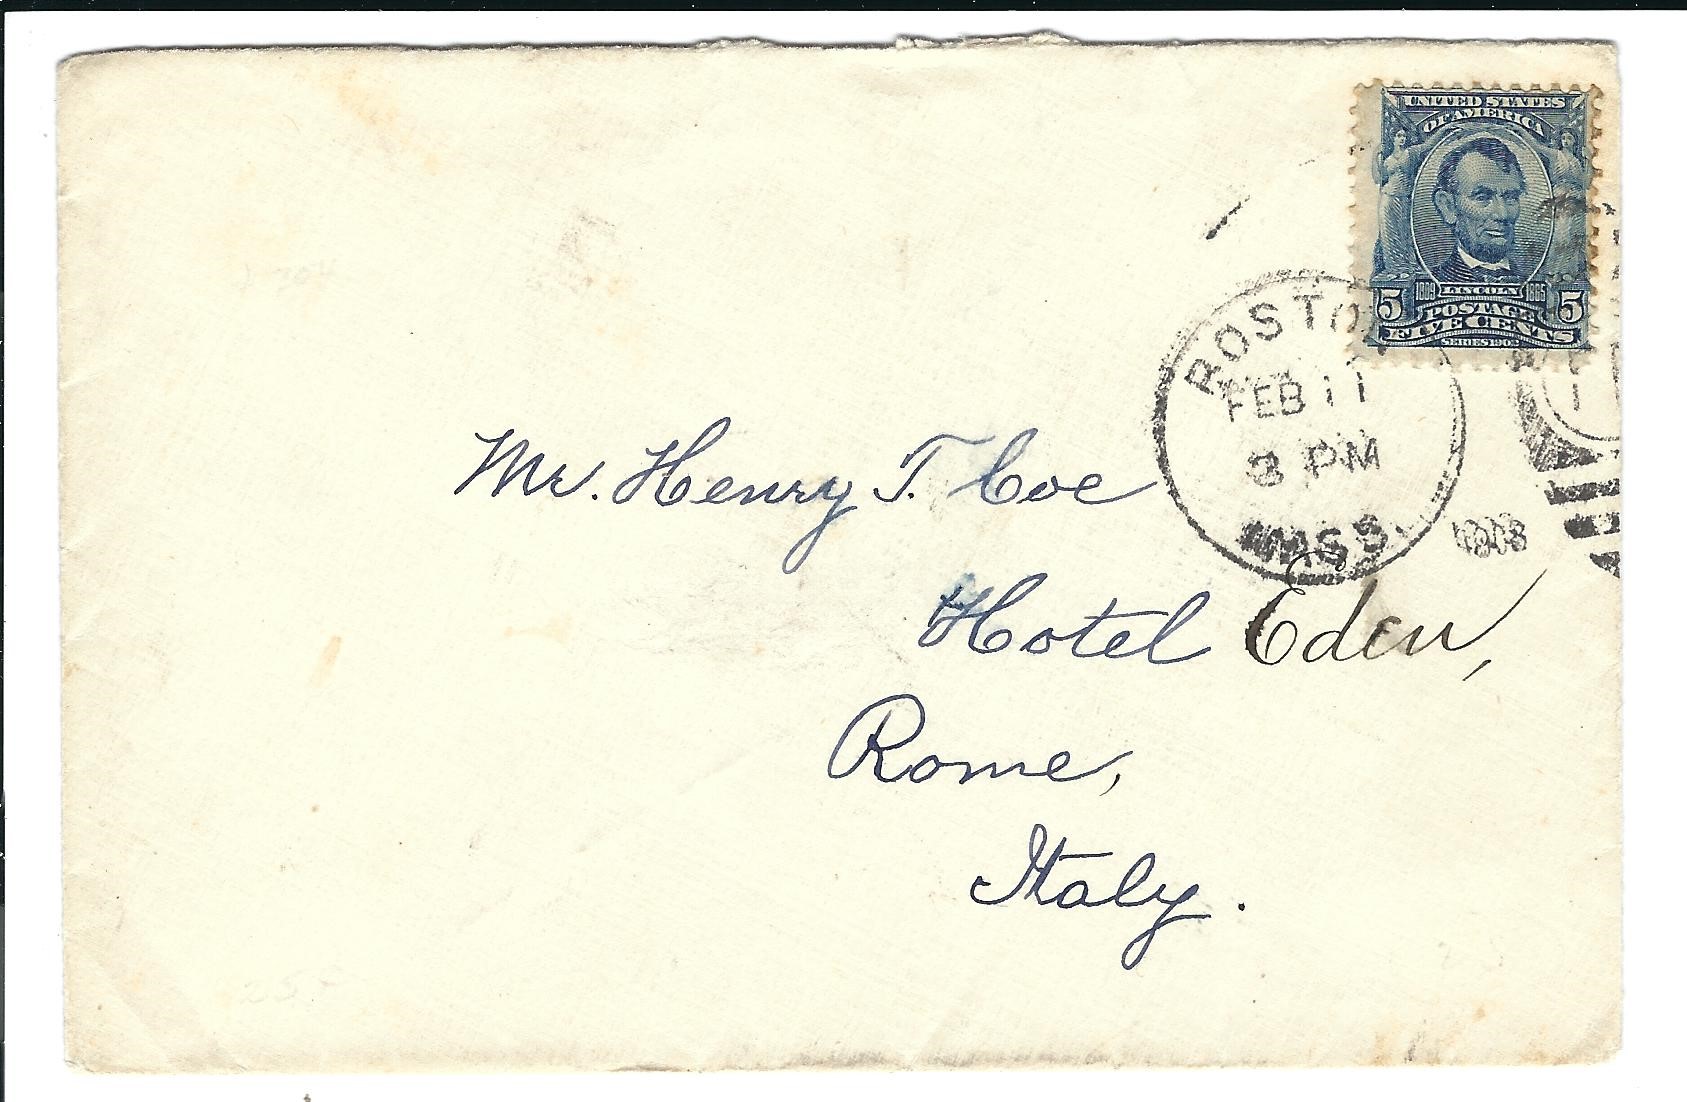 UNITED STATES
OF AMERICA
1809 LINCOLN 1865
5 POSTAGE 5
FIVE CENTS
SERIES 1902
BOSTON
FEB 11
PM
MASS.
Mr. Henry T. Coe
Hotel Eden,
Rome,
Italy.